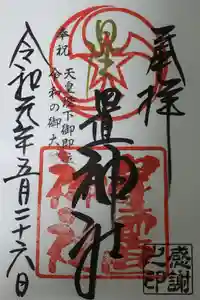 奉拝
奉祝
天皇陛下御即位
令和の御大
星置神社
星置
神社
令和元年五月二十六日
感謝
之印